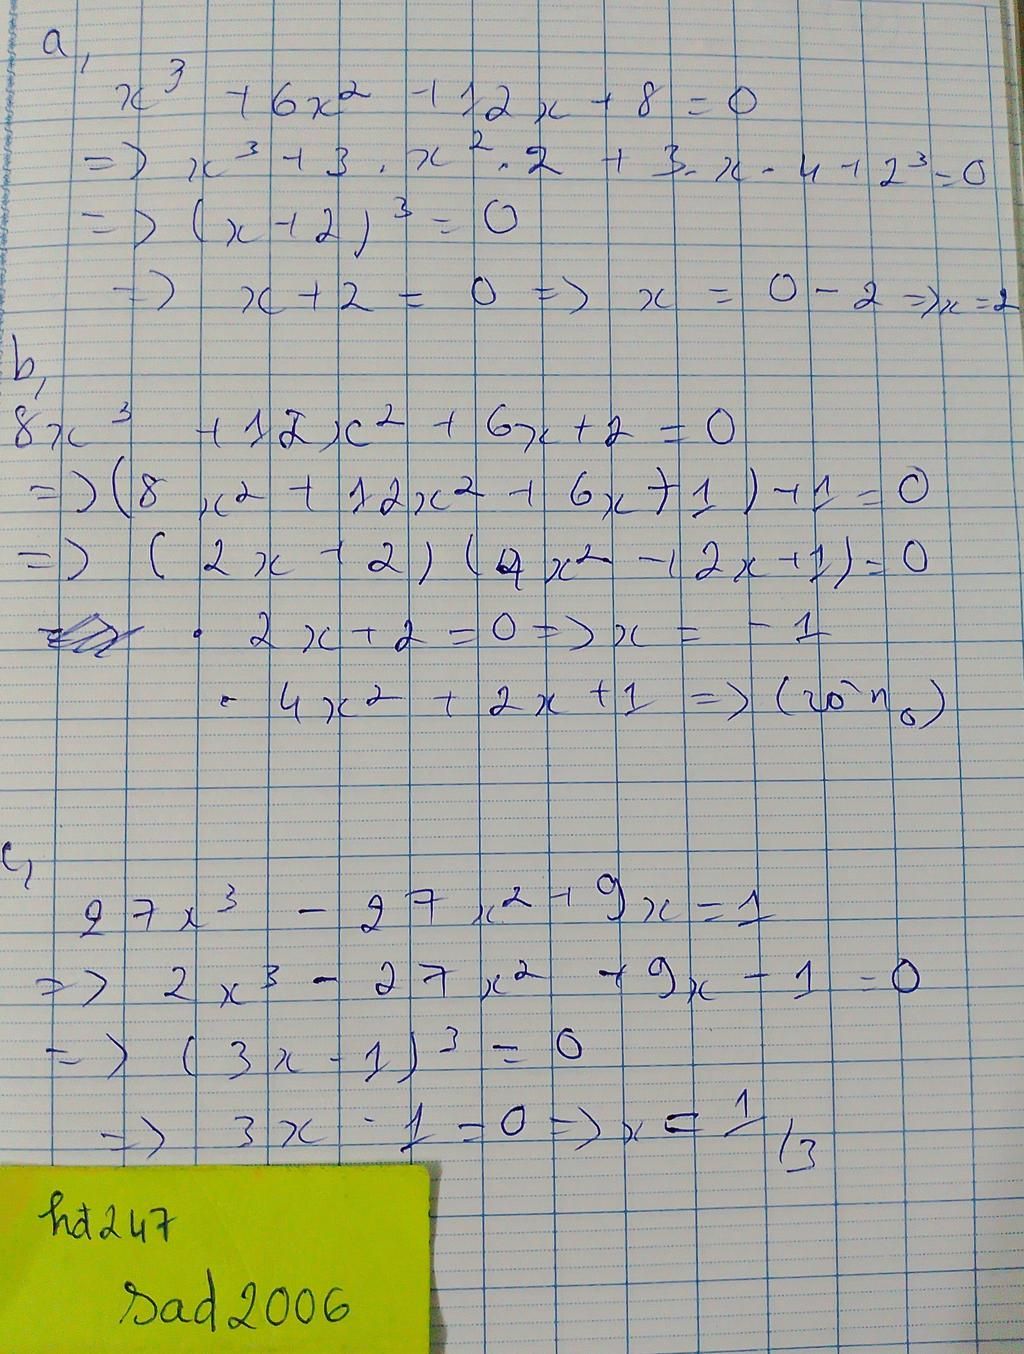 a,
x³ + 6x² + 12x + 8 = 0
=> x³ + 3 . x² . 2 + 3 . x . 4 + 2³ = 0
=> (x + 2)³ = 0
=> x + 2 = 0 => x = 0 - 2 => x = 2
b,
8x³ + 12x² + 6x + 2 = 0
=> (8x² + 12x² + 6x + 1) + 1 = 0
=> (2x + 2) (4x² + 2x + 1) = 0
. 2x + 2 = 0 => x = - 1
- 4x² + 2x + 1 => (vô n₀)
c,
27x³ - 27x² + 9x = 1
=> 2x³ - 27x² + 9x - 1 = 0
=> (3x - 1)³ = 0
=> 3x - 1 = 0 => x = 1/3
hdt247
sad2006